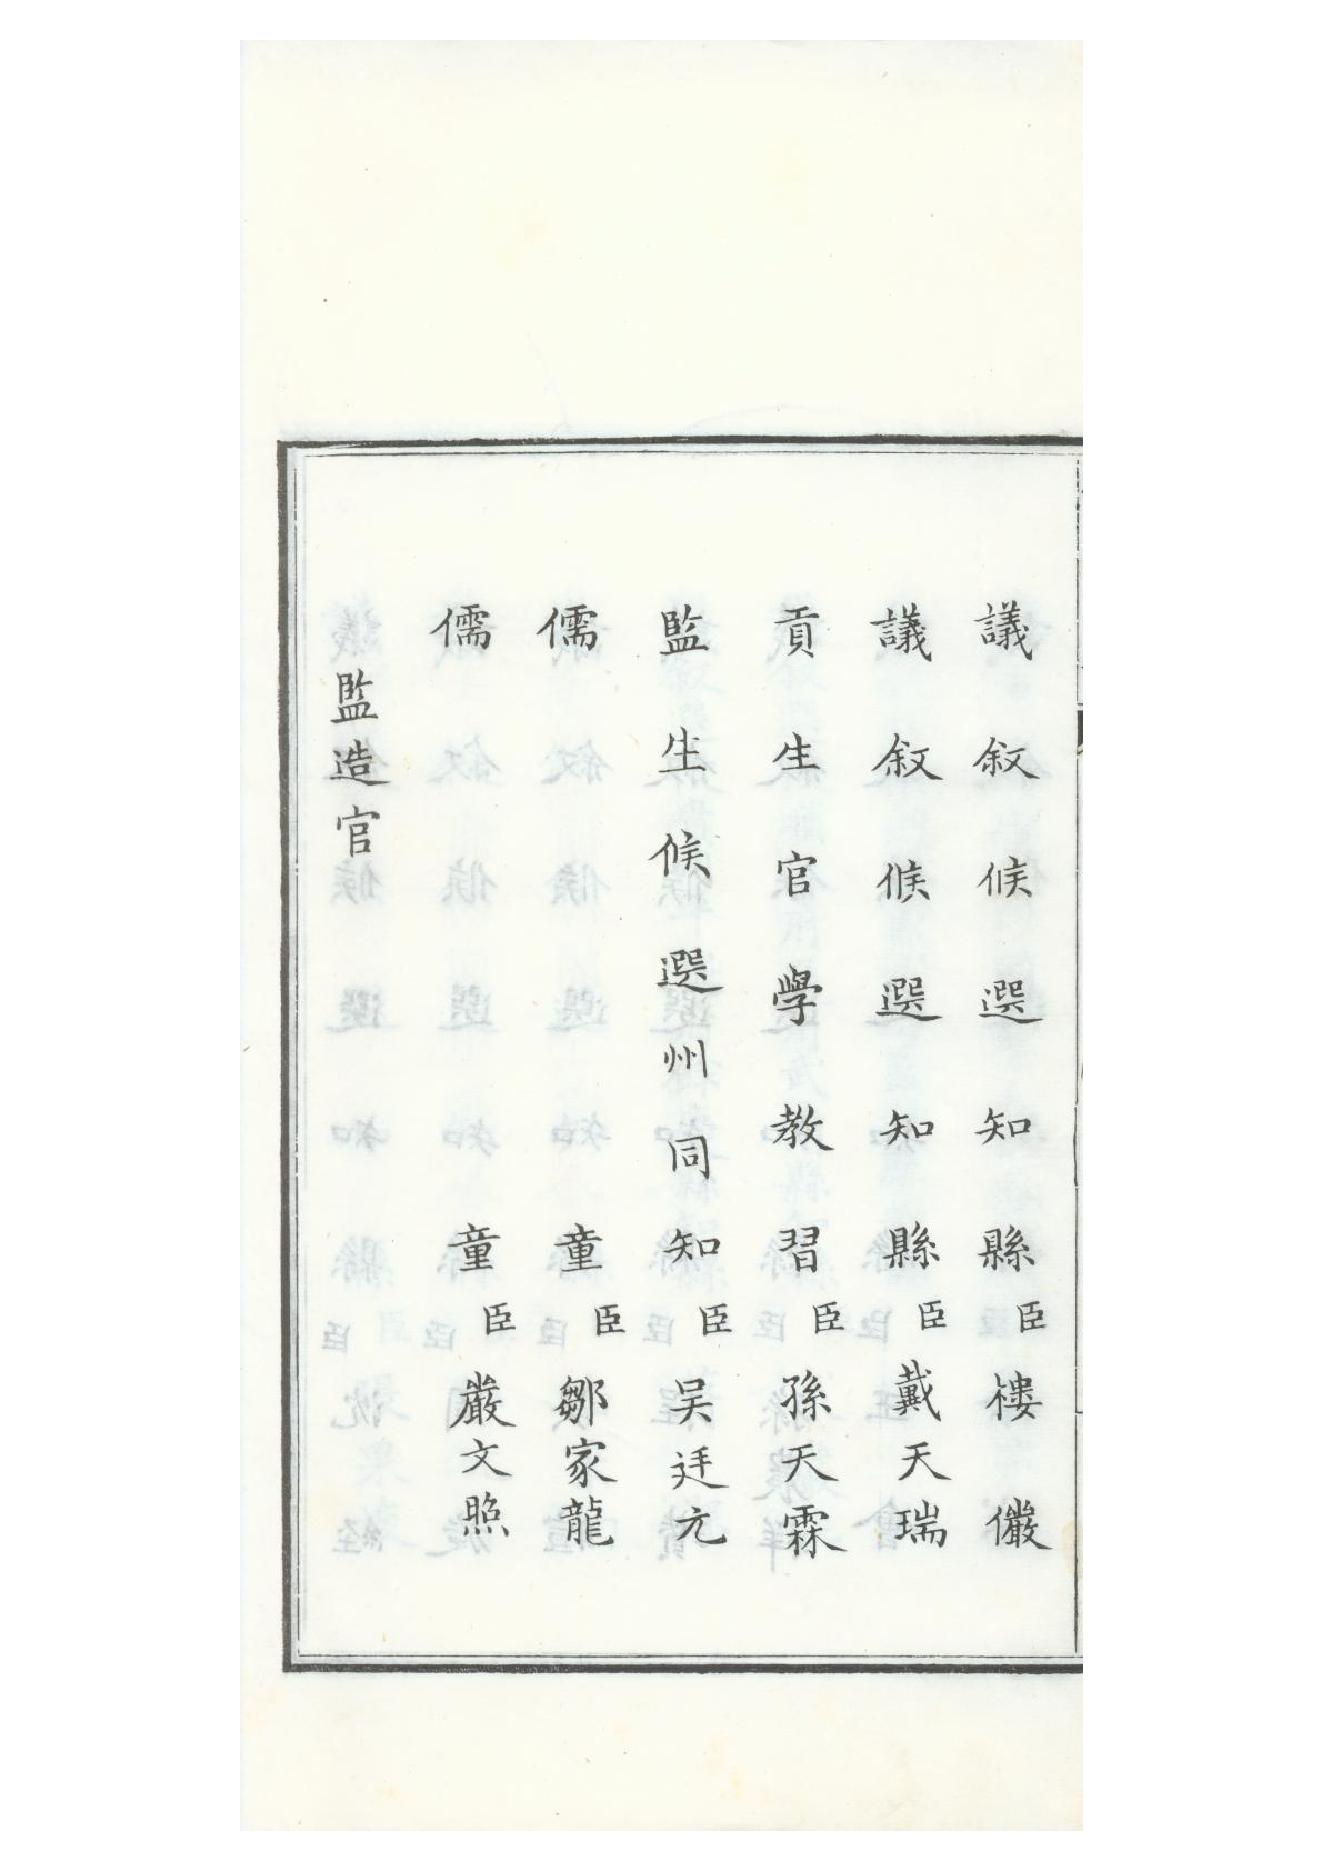 議叙候選知縣臣樓儼
議叙候選知縣臣戴天瑞
貢生官學教習臣孫天霖
監生候選州同知臣吴廷元
儒童臣鄒家龍
儒童臣嚴文照
監造官